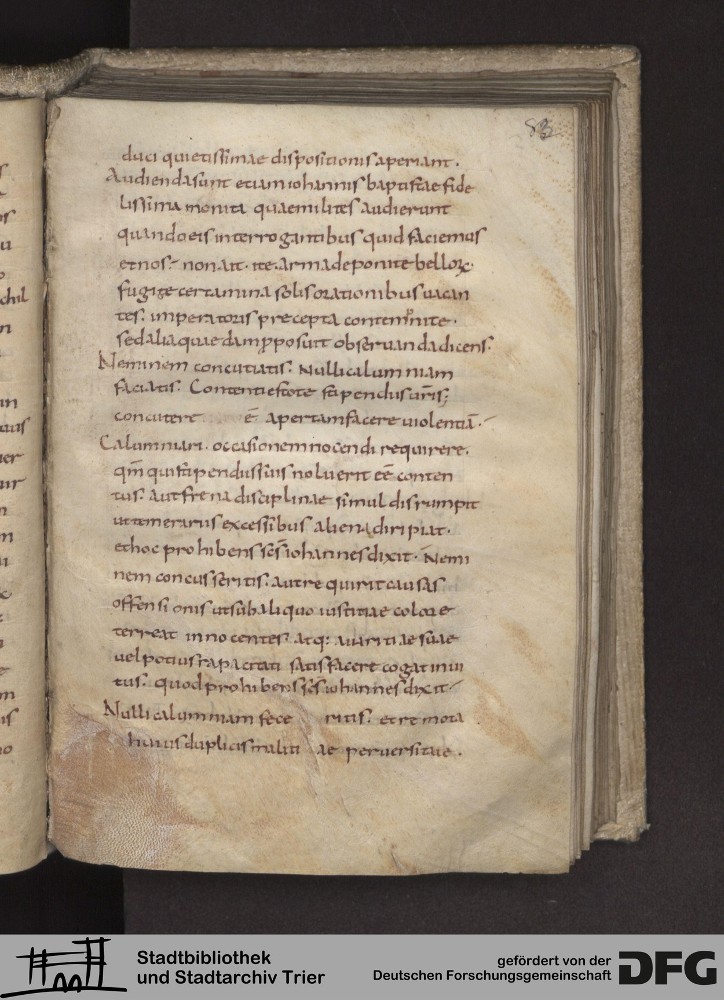 83
duci quietissimae dispositionis aperiant.
Audienda sunt etiam iohannis baptistae fide
lissima monita quae milites audierunt
quando eis interrogantibus quid faciemus
et nos? non ait. ite. arma deponite bellorꝫ.
fugite certamina solis orationibus uacan
tes. imperatoris precepta contemnite.
sed alia quaedam p̱posuit obseruanda dicens.
Neminem concutiatis. Nulli calumniam
faciatis. Contenti estote stipendiis ur̄is;
concutere ē apertam facere uiolentiā.
Calumniari. occasionem nocendi requirere.
qm̄ qui stipendiis suis noluerit eē conten
tus. aut frena disciplinae simul disrumpit
ut temerarius excessibus aliena diripiat.
et hoc prohibens sc̄s iohannes dixit. Nemi
nem concusseritis. aut requirit causas
offensionis ut sub aliquo iustitiae colore
terreat innocentes. atq: auaritiae suae
uel potius rapacitati satisfacere cogat inui
tus. quod prohibens sc̄s iohannes dixit.
Nulli calumniam fece ritis. et remota
huius duplicis maliti ae peruersitate.
Stadtbibliothek
und Stadtarchiv Trier
gefördert von der
Deutschen Forschungsgemeinschaft
DFG